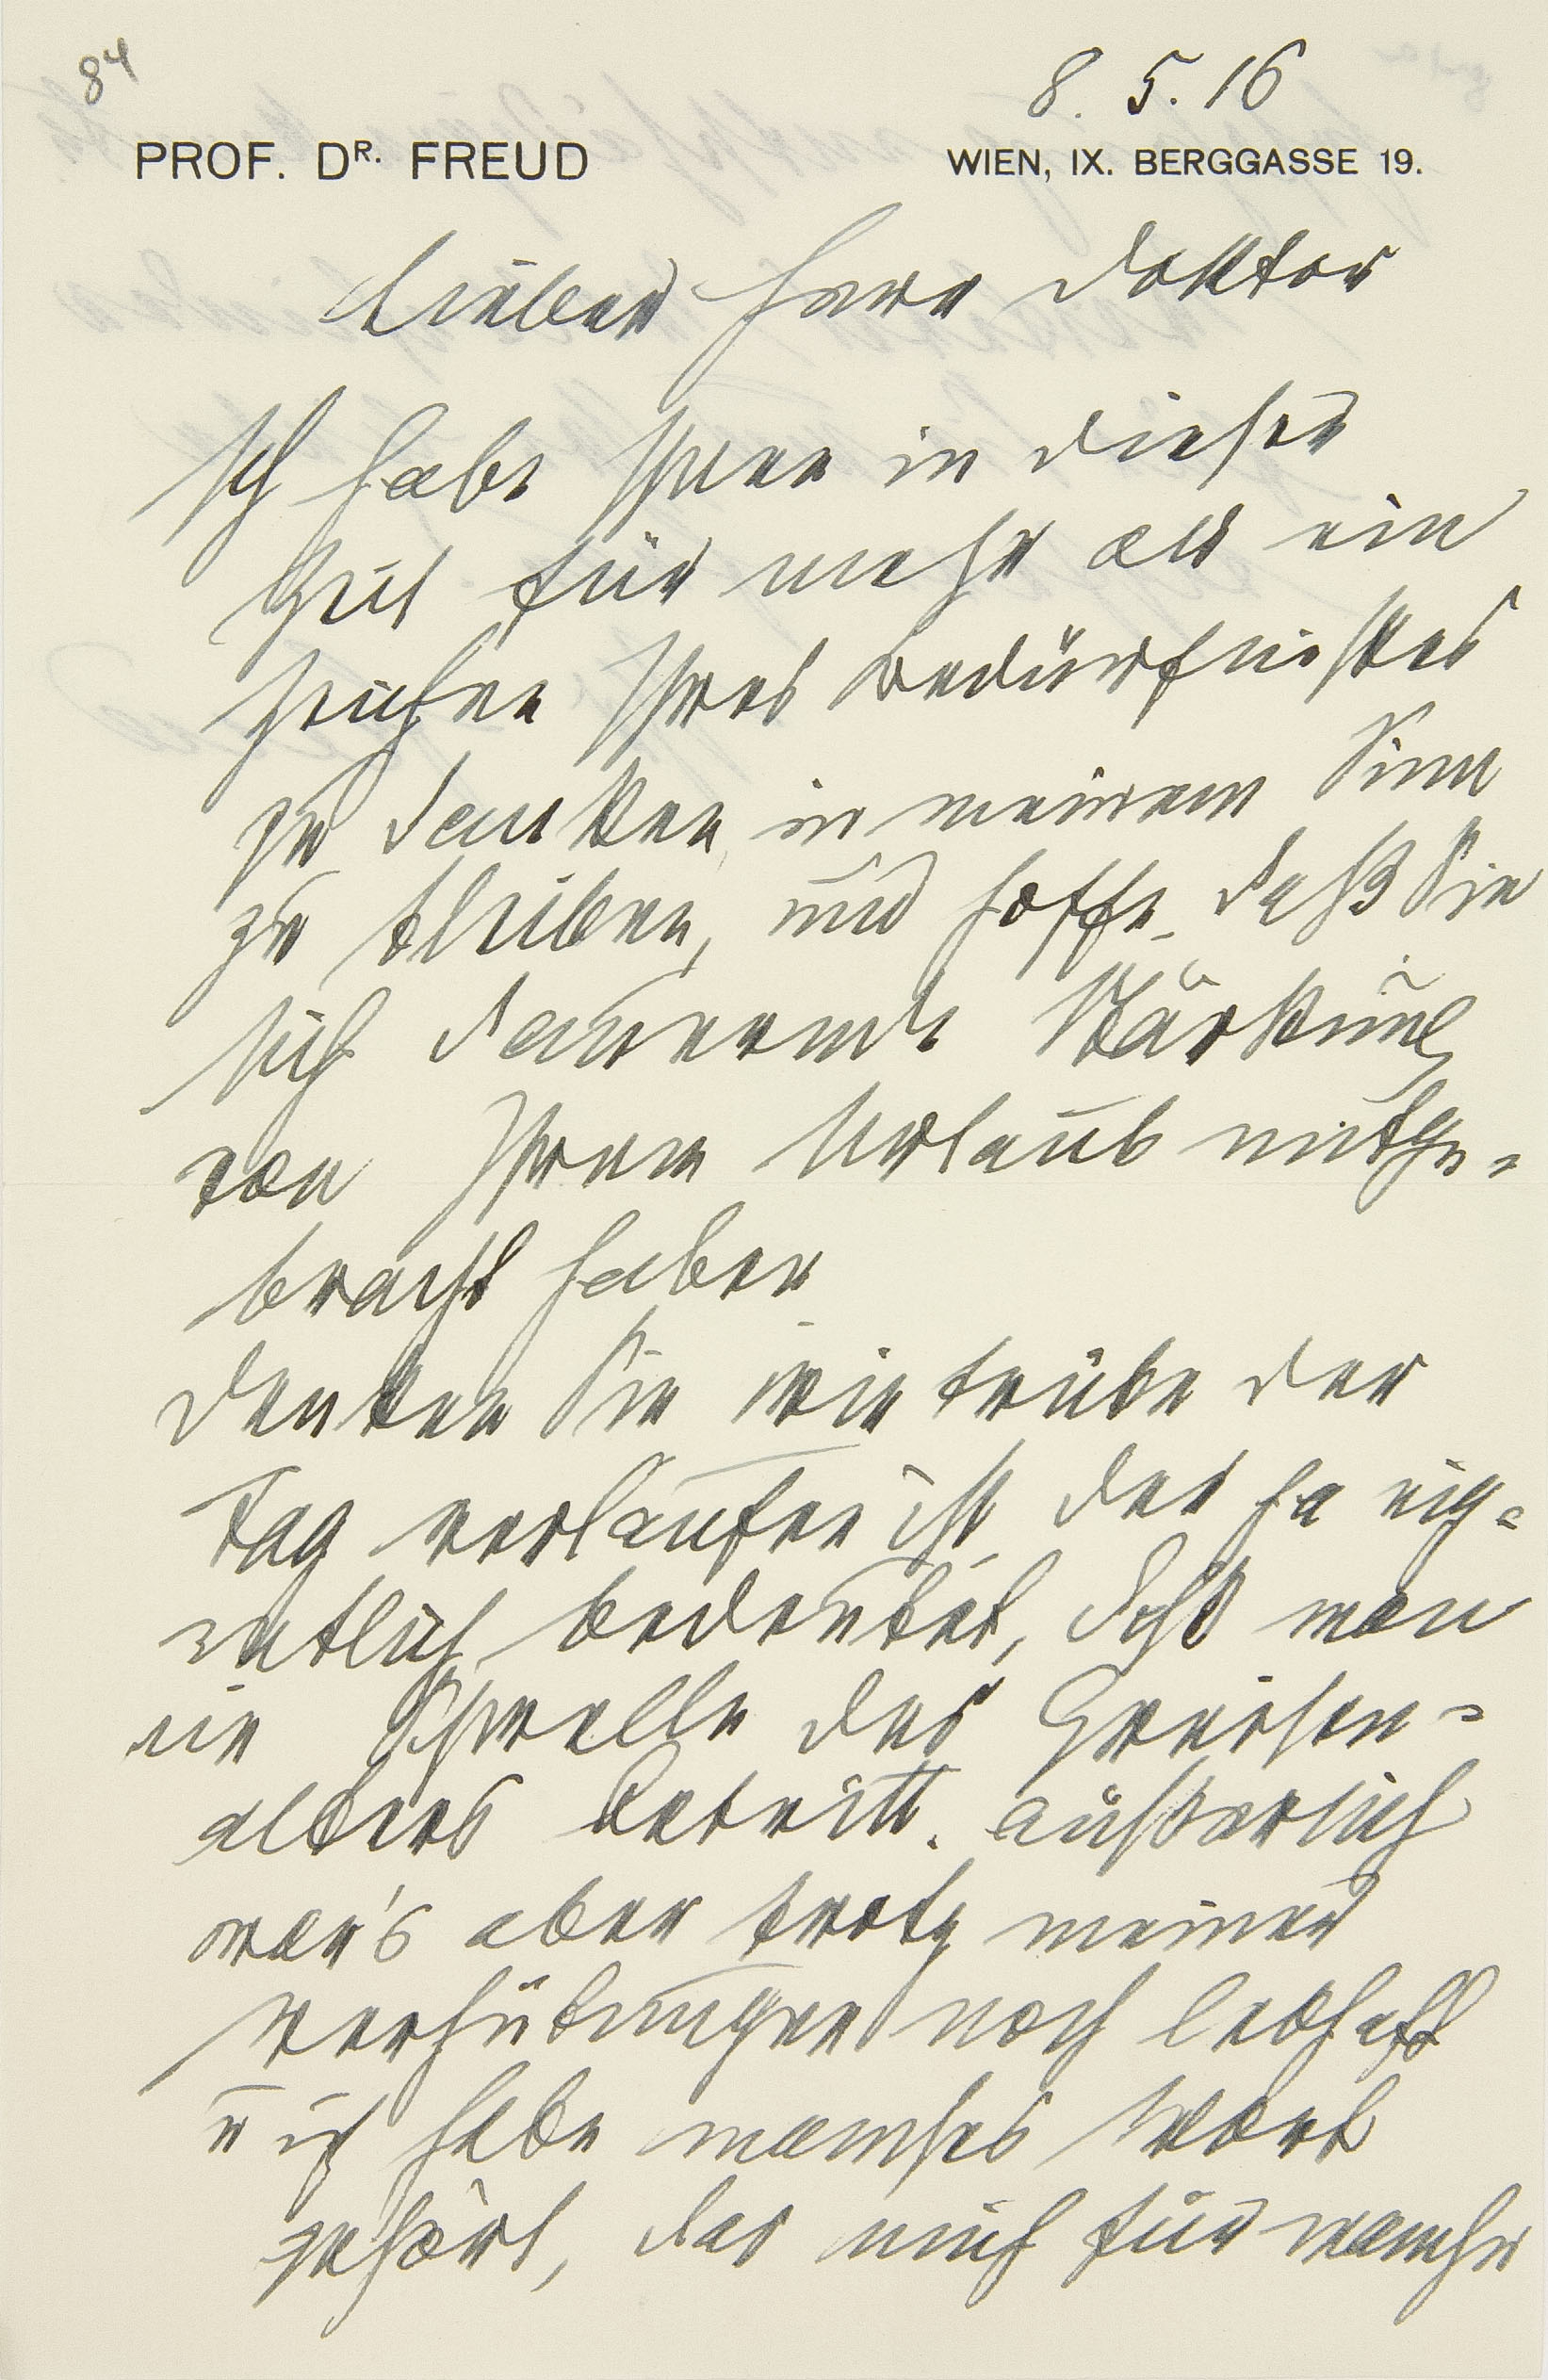 84
8. 5. 16
PROF. DR. FREUD
WIEN, IX. BERGGASSE 19.
Lieber Herr Doktor
Ich habe Ihnen in dieser
Zeit für mehr als ein
Zeichen Ihres Bedürfnisses
zu danken, in meinem Sinn
zu bleiben, und hoffe, daß Sie
sich dauernde Stärkung
von Ihrem Urlaub mitge-
bracht haben
Denken Sie wie trübe der
Tag verlaufen ist, der ja eig-
entlich bedeutet, daß man
die Schwelle des Greisen-
alters betritt. Äußerlich
war's aber trotz meiner
Verhütungen noch lebhaft
u ich habe manches Wort
gehört, das mich für manche